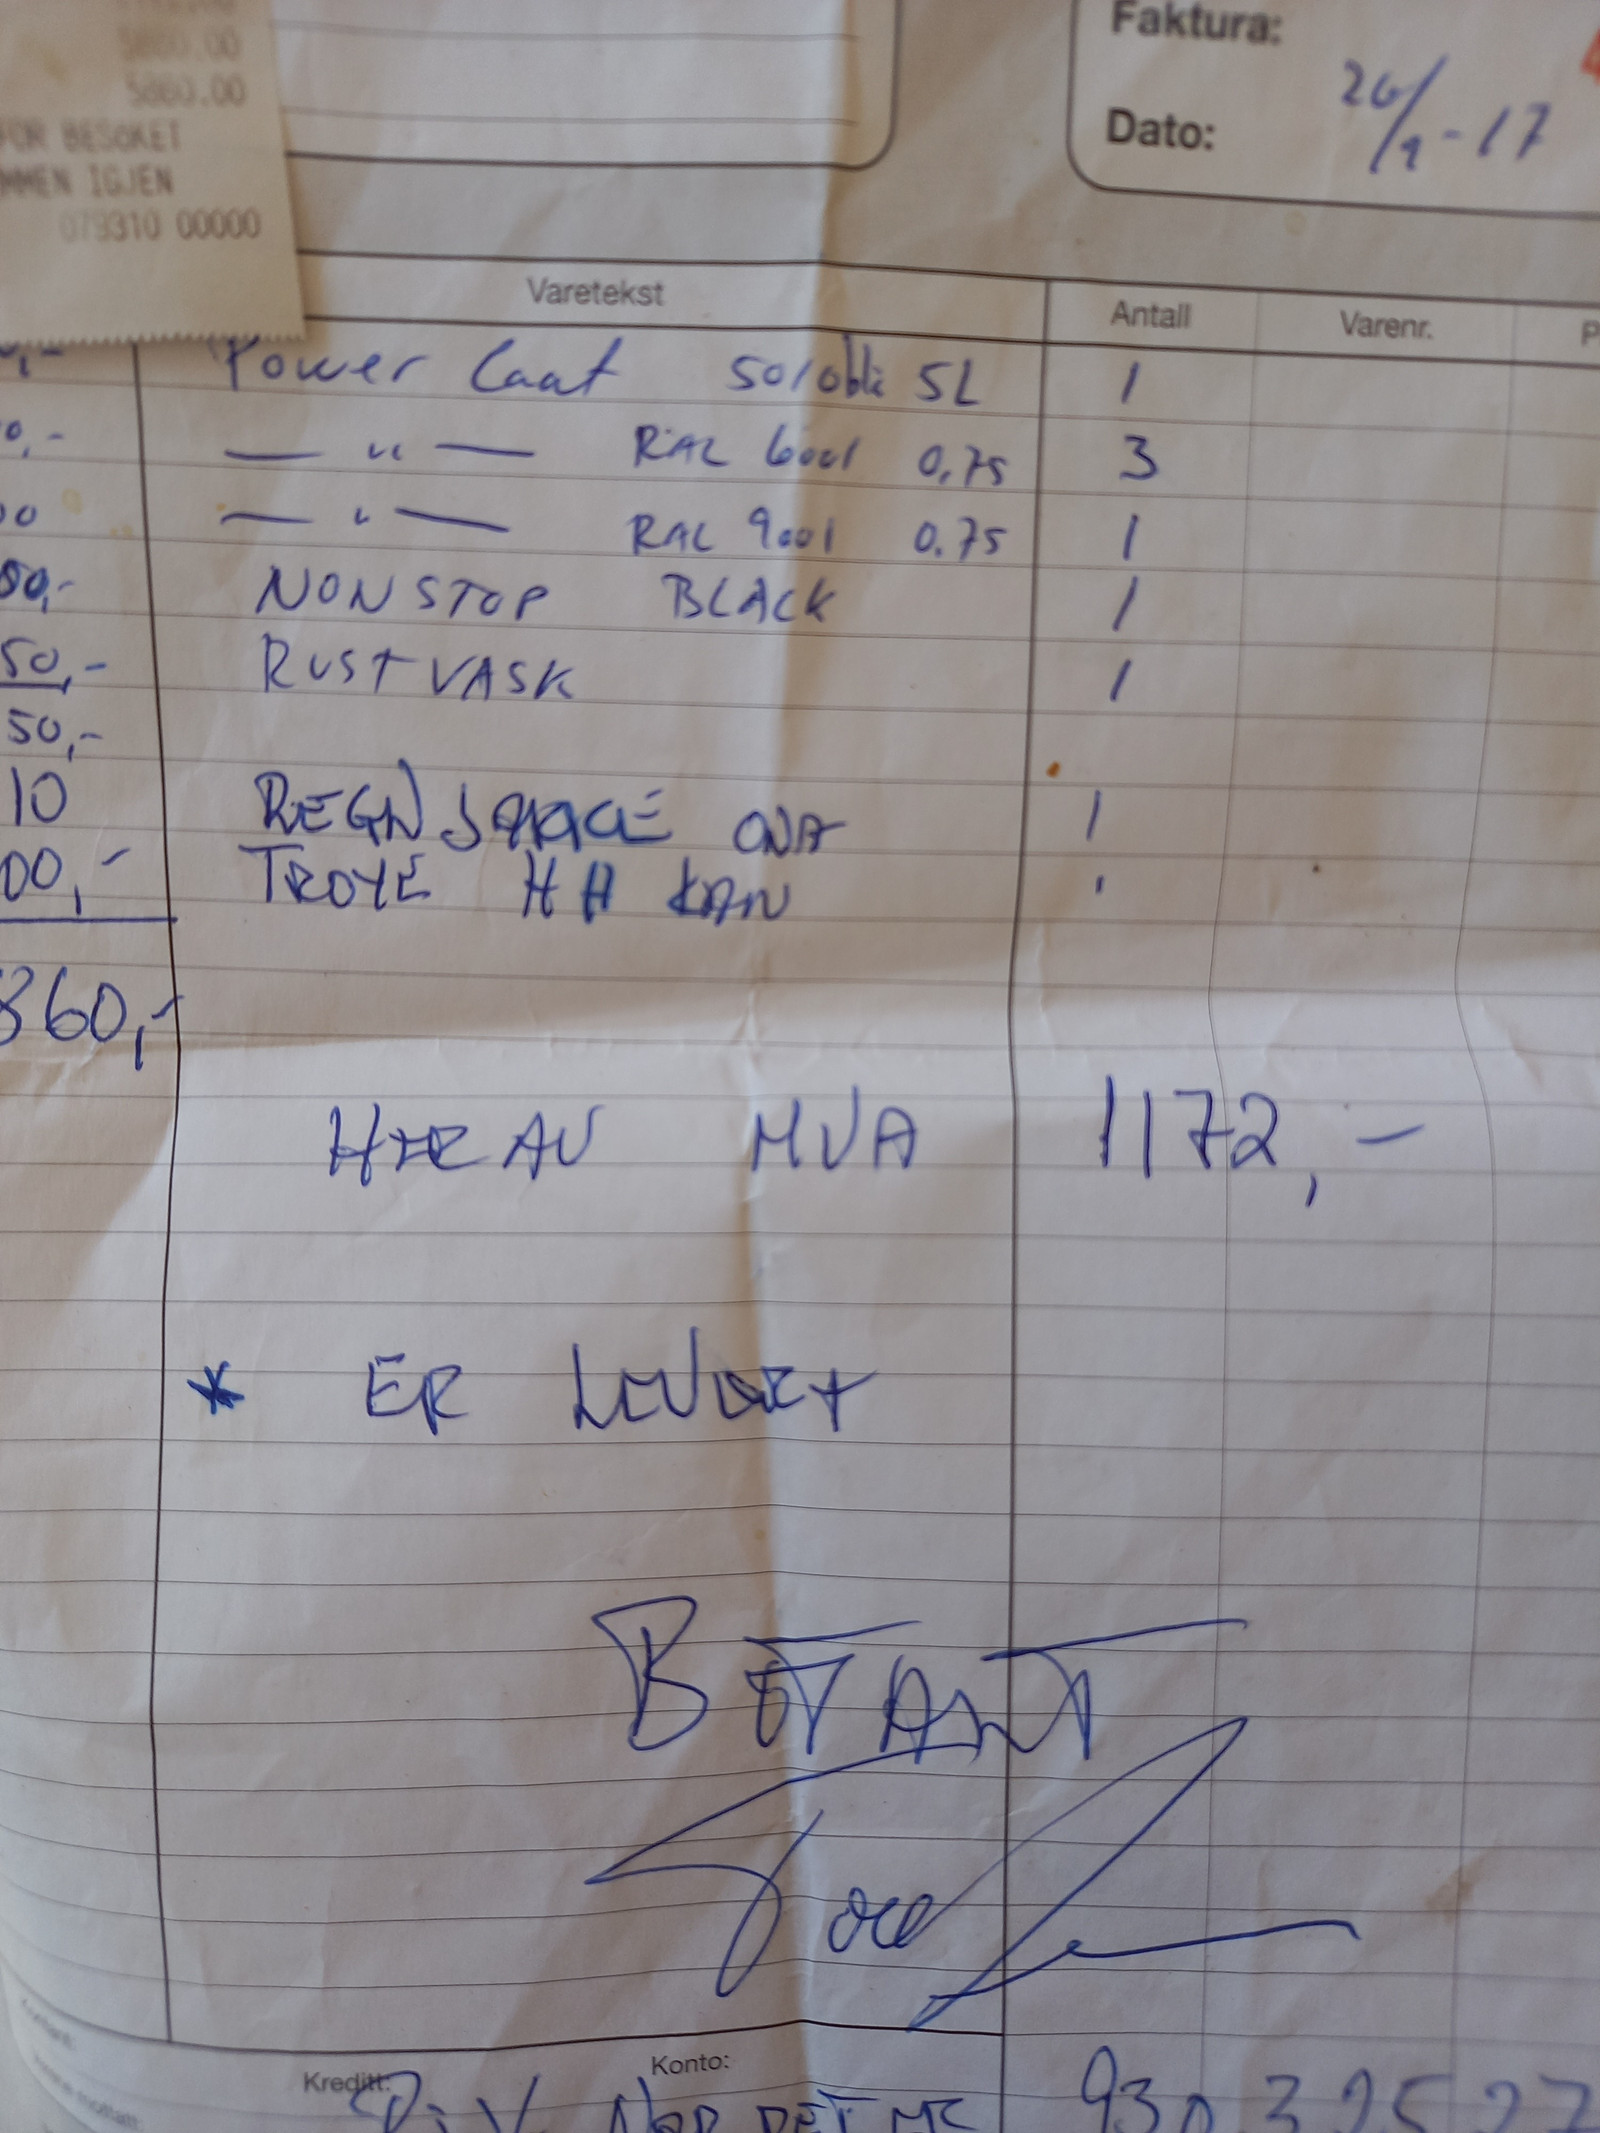 5860.00
5860.00
FOR BESØKET
MMEN IGJEN
079310 00000
Faktura:
Dato: 26/9-17
Varetekst Antall Varenr. P
Power Coat 50/oblk 5L 1
0,- — " — RAL 6001 0,75 3
00 — " — RAL 9001 0.75 1
00,- NONSTOP BLACK 1
50,- RUSTVASK 1
50,-
10 REGNJAKKE 1
00,- TROYE HH KAN 1
860,-
HERAV MVA 1172,-
* ER LEVERT
BETALT
Kreditt: Konto: